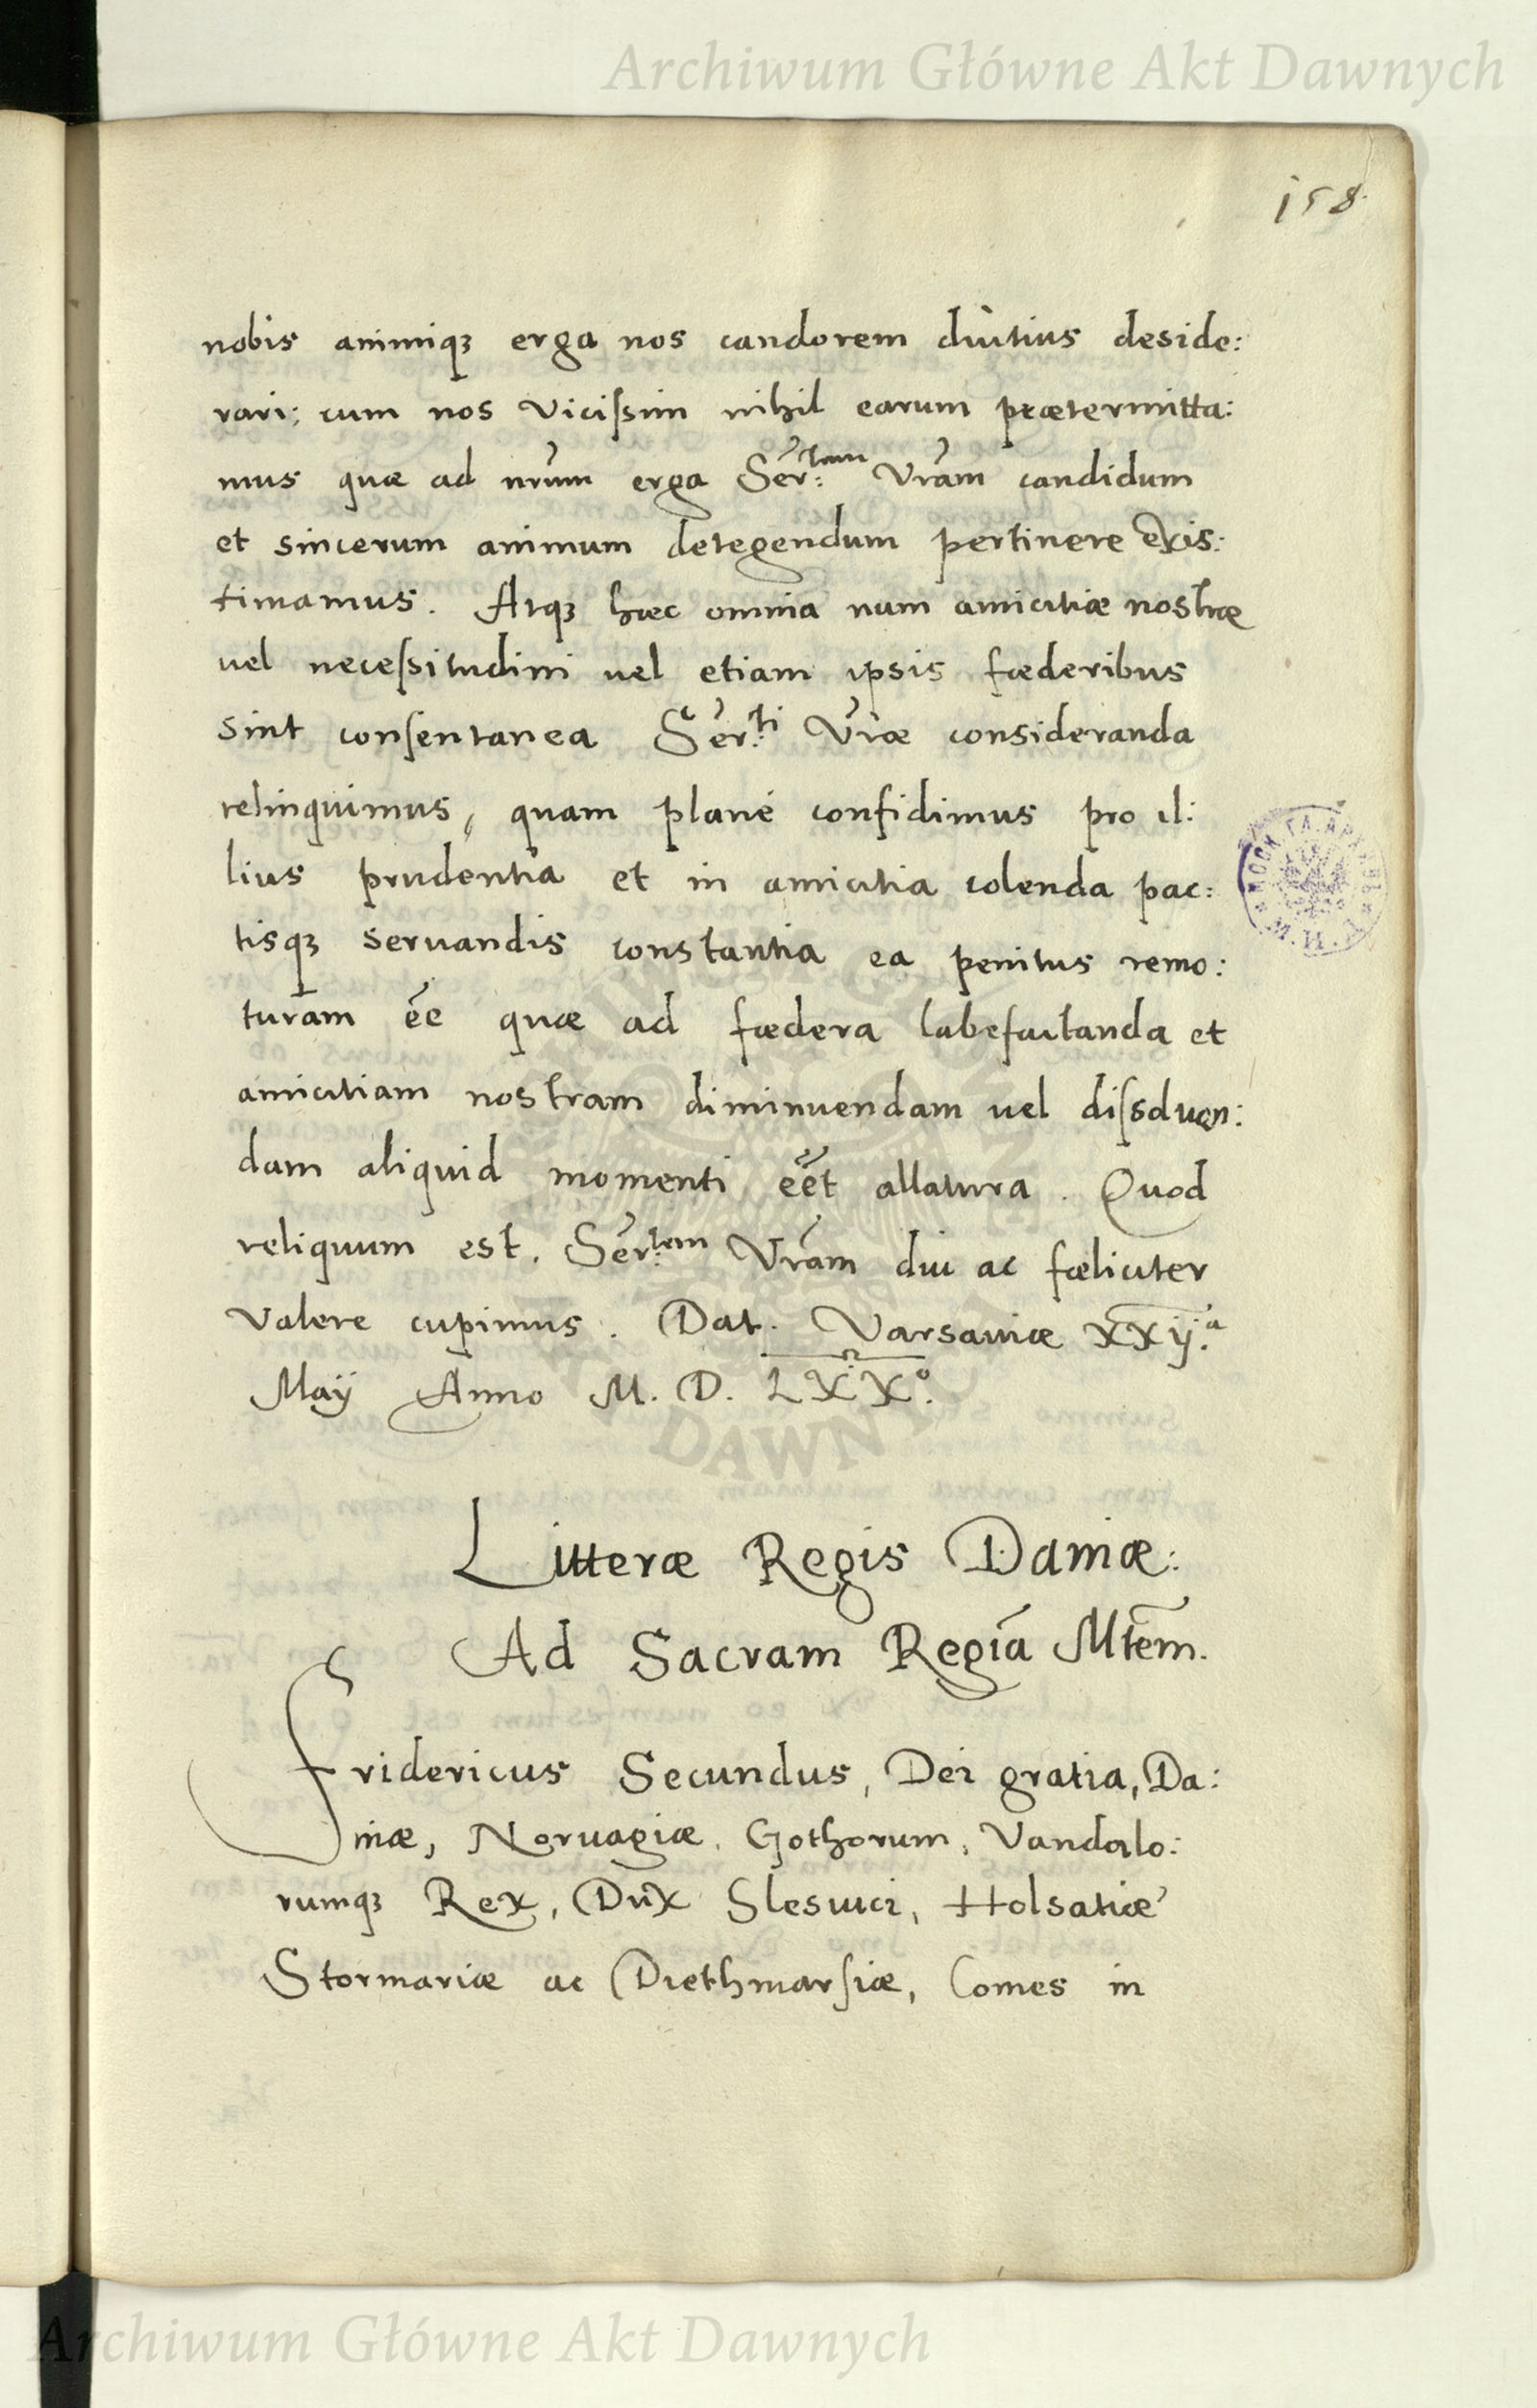 Archiwum Główne Akt Dawnych
158
nobis animiqꝫ erga nos candorem diutius deside:
rari: cum nos vicissim nihil earum prætermitta:
mus quæ ad nr̃um erga Ser:tem Vr̃am candidum
et sincerum animum detegendum pertinere exis:
timamus. Atqꝫ hæc omnia num amicitiæ nostræ
vel necessitudini vel etiam ipsis fœderibus
sint consentanea Ser:ti Vr̃æ consideranda
relinquimus, quam planè confidimus pro il:
lius prudentia et in amicitia colenda pac:
tisqꝫ seruandis constantia ea penitus remo:
turam ẽe quæ ad fœdera labefactanda et
amicitiam nostram diminuendam vel dissoluen:
dam aliquid momenti eẽt allatura. Quod
reliquum est. Ser:tem Vr̃am diu ac fœliciter
valere cupimus. Dat. Varsauiæ XXij.a
Maÿ Anno M. D. LXXo.
Litteræ Regis Daniæ:
Ad Sacram Regiã Mtẽm.
Fridericus Secundus, Dei gratia, Da:
niæ, Noruagiæ, Gothorum, Vandalo:
rumqꝫ Rex, Dux Slesuici, Holsatiæ
Stormariæ ac Diethmarsiæ, Comes in
Archiwum Główne Akt Dawnych